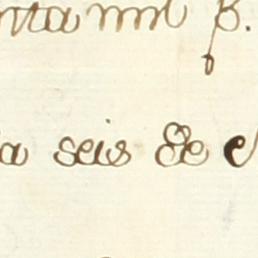 nta mil p.
a seis de